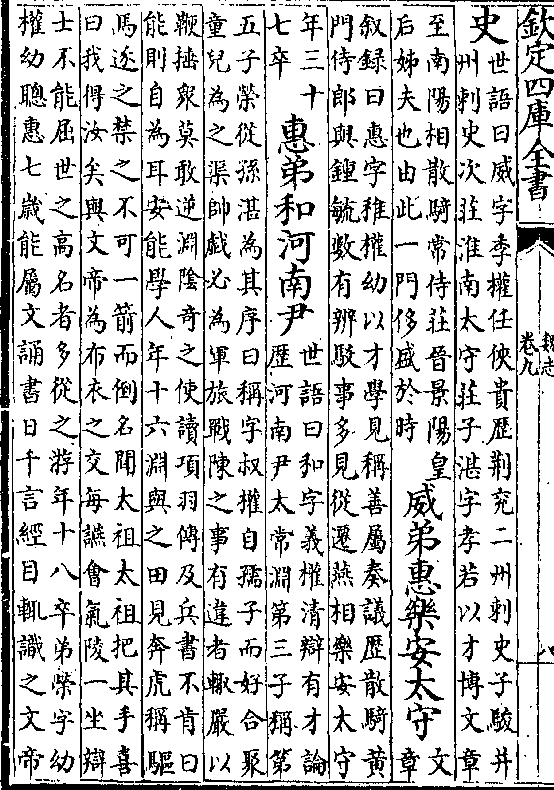 欽定四庫全書
魏志
卷九
八
史
世語曰威字季權任俠貴歴荆兖二州刺史子駿并
州刺史次莊淮南太守莊子湛字孝若以才博文章
至南陽相散騎常侍莊晉景陽皇
后姊夫也由此一門侈盛於時
威弟惠樂安太守
文
章
叙録曰惠字稚權幼以才學見稱善屬奏議歴散騎黄
門侍郎與鍾毓數有辨駁事多見從遷燕相樂安太守
年三十
七卒
惠弟和河南尹
世語曰和字義權清辯有才論
歴河南尹太常淵第三子稱第
五子榮從孫湛為其序曰稱字叔權自孺子而好合聚
童兒為之渠帥戲必為軍旅戰陳之事有違者輙嚴以
鞭捶衆莫敢逆淵陰奇之使讀項羽傳及兵書不肯曰
能則自為耳安能學人年十六淵與之田見奔虎稱驅
馬逐之禁之不可一箭而倒名聞太祖太祖把其手喜
曰我得汝矣與文帝為布衣之交每讌會氣陵一坐辯
士不能屈世之高名者多從之游年十八卒弟榮字幼
權幼聰惠七歳能屬文誦書日千言經目輙識之文帝